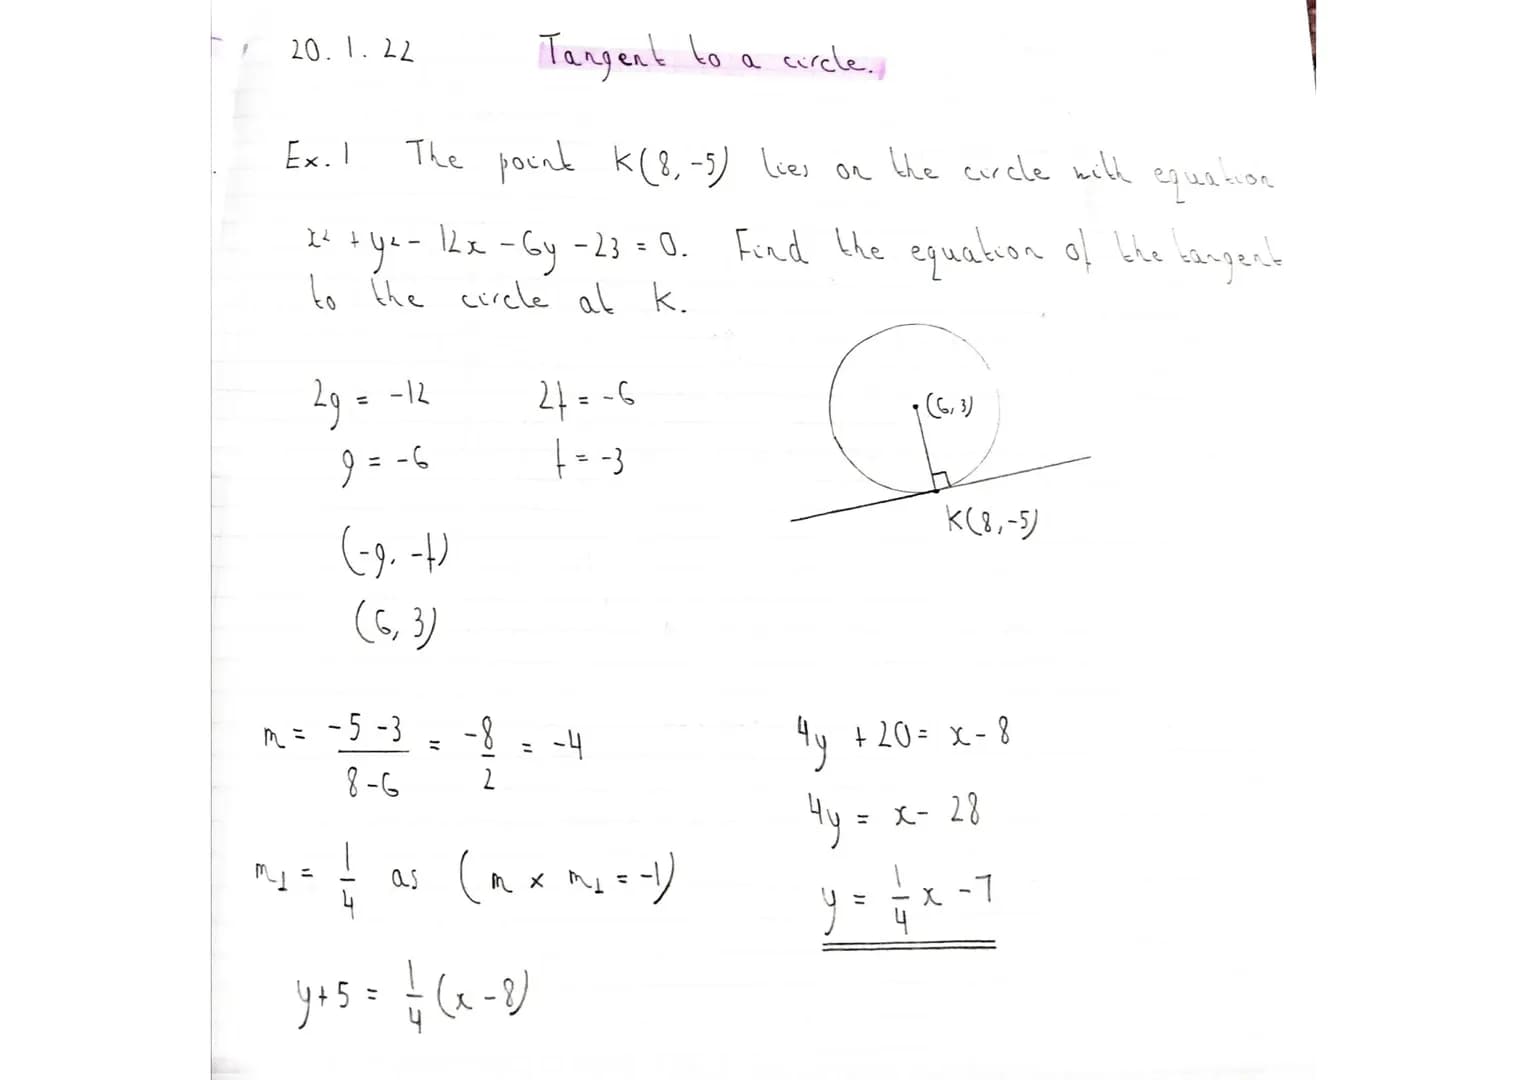 20. 1. 22 Tangent to a circle.
Ex. 1 The point K(8, -5) lies on the circle with equation
x² + y² - 12x - 6y - 23 = 0. Find the equation of the tangent
to the circle at K.
2g = -12 2f = -6
g = -6 f = -3
(-g, -f)
(6, 3)
(6, 3)
K(8, -5)
m = (-5 - 3)/(8 - 6) = -8/2 = -4
m⊥ = 1/4 as (m × m⊥ = -1)
y + 5 = 1/4 (x - 8)
4y + 20 = x - 8
4y = x - 28
y = 1/4 x - 7